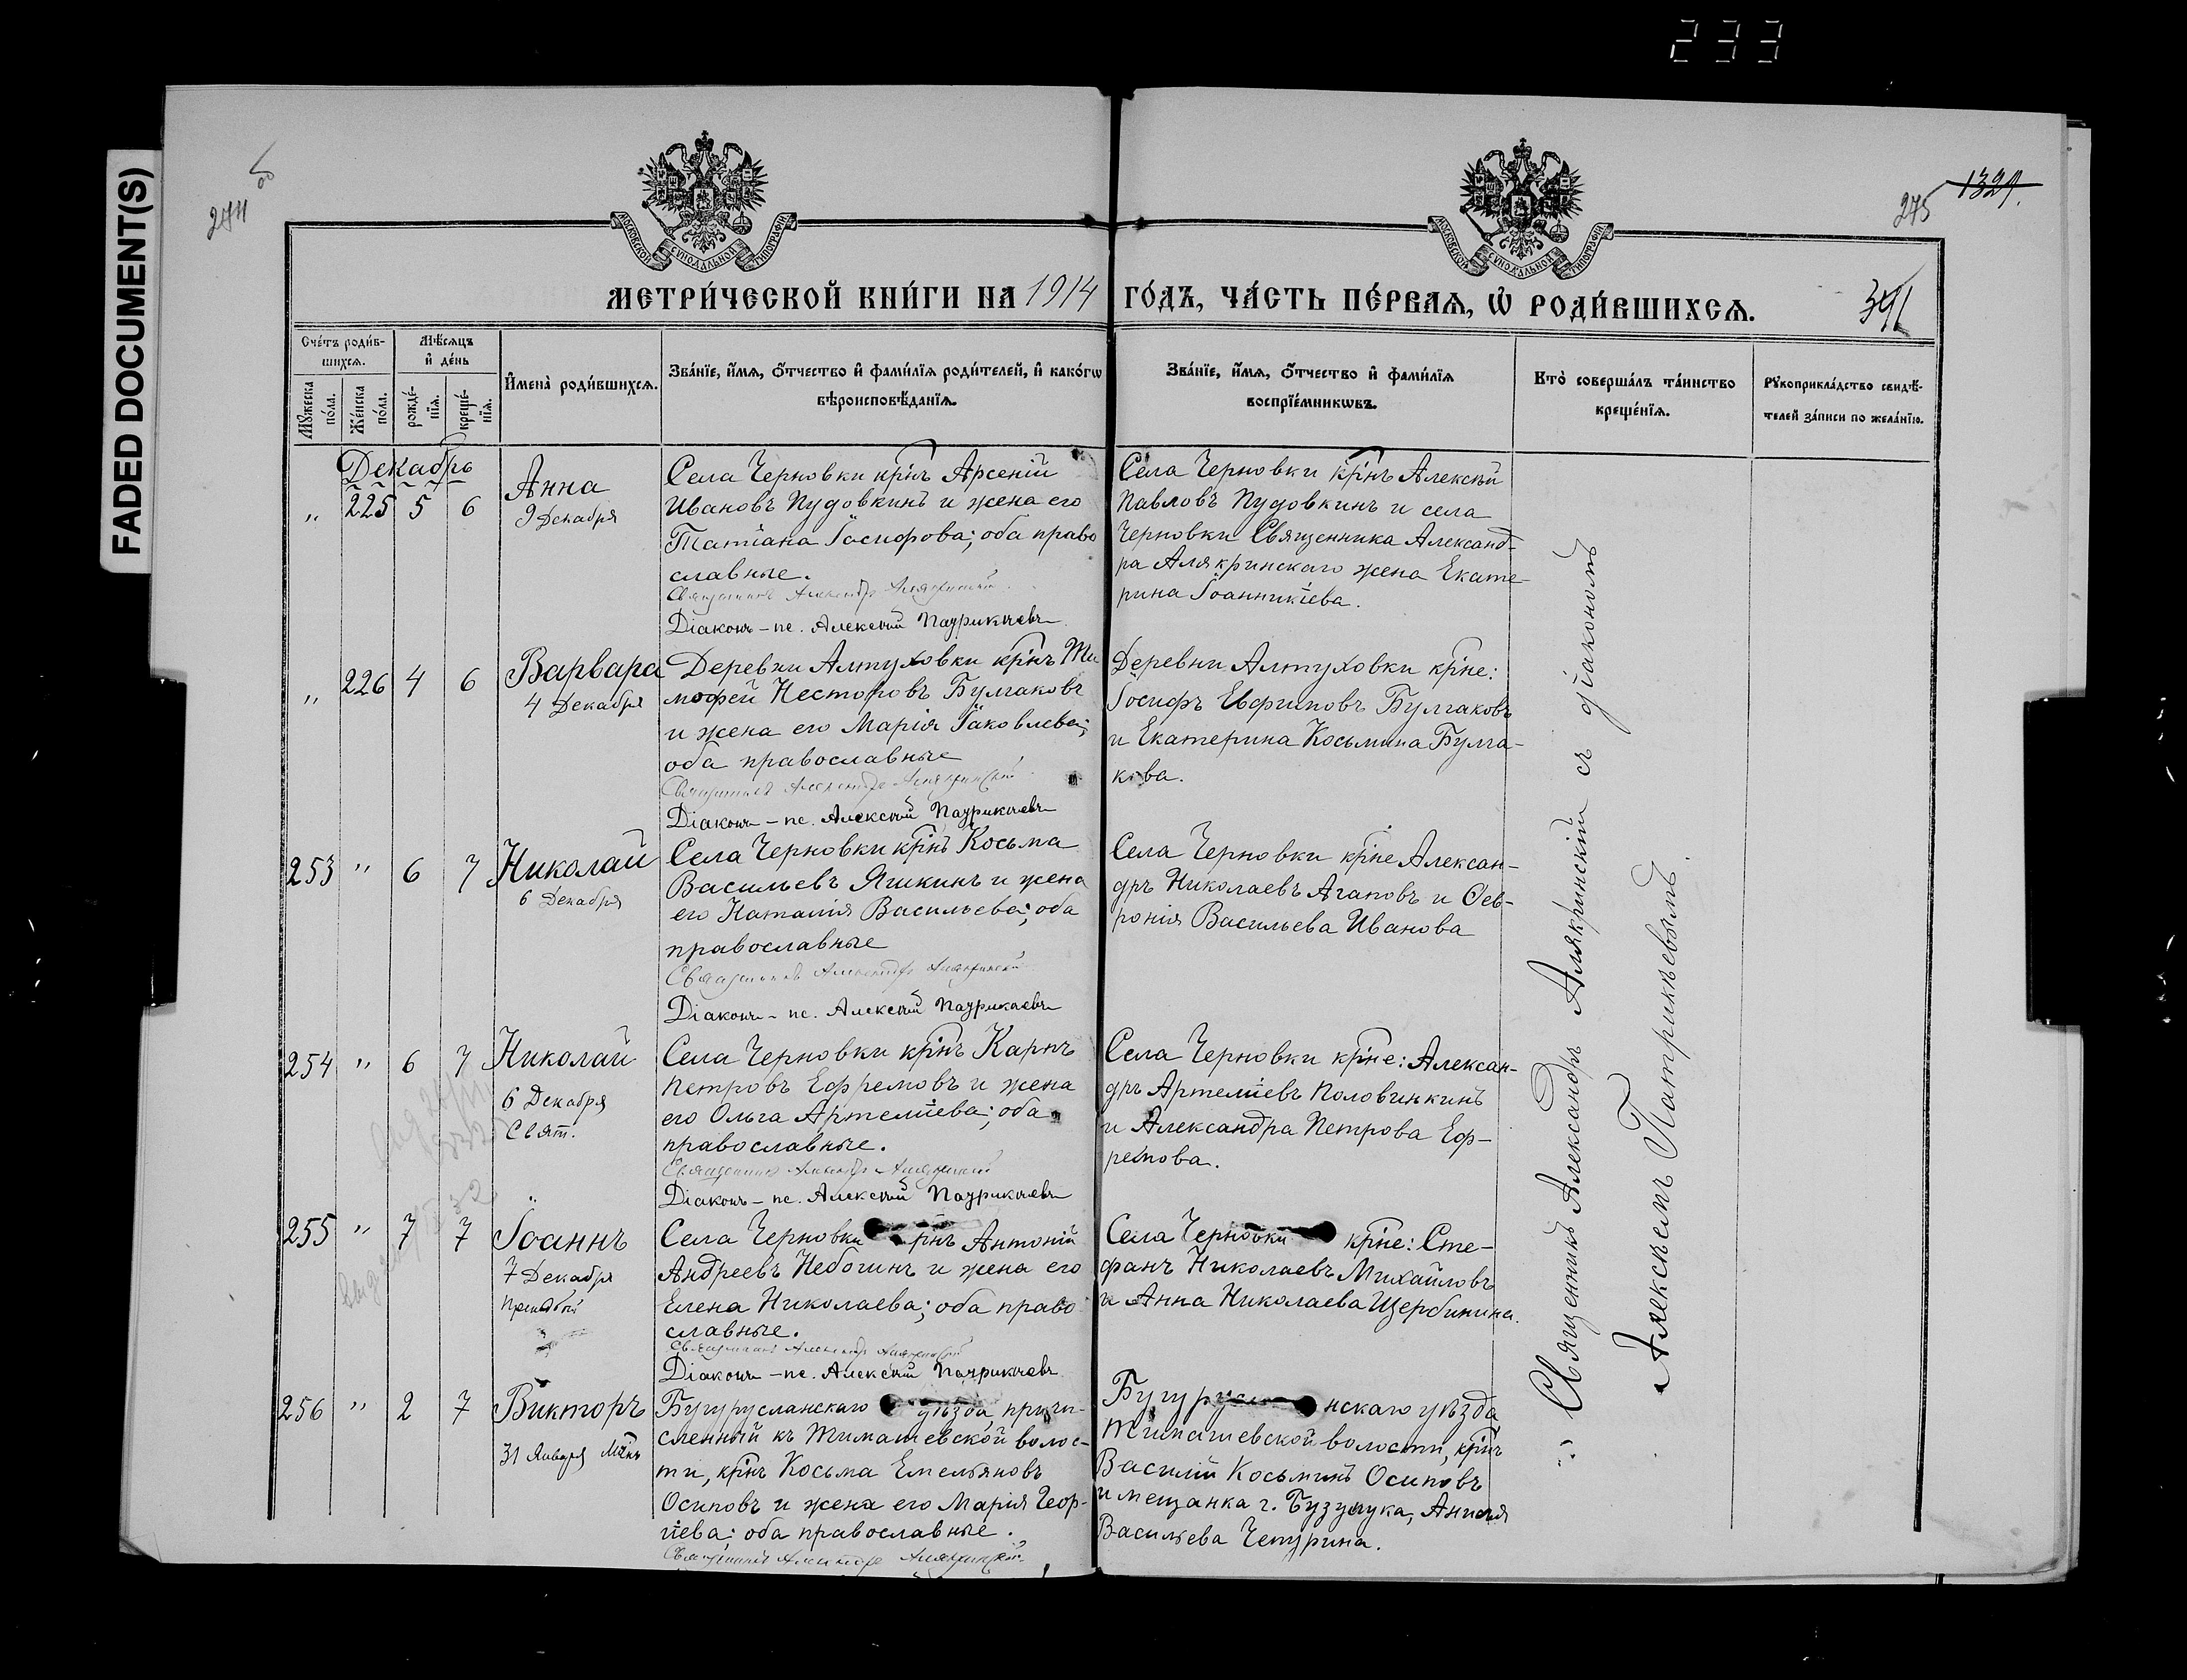 233
FADED DOCUMENT(S)
274
275
1329.
391
МОСКОВСКОЙ СѴНОДАЛЬНОЙ ТИПОГРАФІИ
МОСКОВСКОЙ СѴНОДАЛЬНОЙ ТИПОГРАФІИ
МЕТРИ́ЧЕСКОЙ КНИ́ГИ НА 1914 ГО́ДЪ, ЧА́СТЬ ПЕ́РВАѦ, Ѡ҆ РОДИ́ВШИХСѦ.
Сче́тъ роди́в-
шихсѧ.
Мѣ́сѧцъ
и҆ де́нь
Мꙋжеска
по́ла.
Же́нска
по́ла.
рожде́-
нїѧ.
креще́-
нїѧ.
И҆мена̀ роди́вшихсѧ.
Зва́нїе, и҆́мѧ, ѻ҆́тчество и҆ фами́лїѧ роди́телей, и҆ како́гѡ
вѣроисповѣ́данїѧ.
Зва́нїе, и҆́мѧ, ѻ҆́тчество и҆ фами́лїѧ
воспрїе́мникѡвъ.
Кто̀ соверша́лъ та́инство
креще́нїѧ.
Рꙋкоприкла́дство свидѣ́-
телей за́писи по жела́нїю.
Декабрь
" 225 5 6 Анна
9 Декабря
Села Черновки крнъ Арсеній
Ивановъ Пудовкинъ и жена его
Татіана Іосифова; оба право
славные.
Священникъ Александръ Алякринскій
Діаконъ – пс. Алексѣй Патрикѣевъ
Села Черновки крнъ Алексѣй
Павловъ Пудовкинъ и села
Черновки Священника Александ-
ра Алякринскаго жена Екате-
рина Іоанникіева.
" 226 4 6 Варвара
4 Декабря
Деревни Алтуховки крнъ Ти
мофей Несторовъ Булгаковъ
и жена его Марія Іаковлева;
оба православные
Священникъ Александръ Алякринскій
Діаконъ – пс. Алексѣй Патрикѣевъ
Деревни Алтуховки крне:
Іосифъ Евфимовъ Булгаковъ
и Екатерина Косьмина Булга-
кова.
253 " 6 7 Николай
6 Декабря
Села Черновки крнъ Косьма
Васильевъ Яшкинъ и жена
его Наталія Васильева; оба
православные
Священникъ Александръ Алякринскій
Діаконъ – пс. Алексѣй Патрикѣевъ
Села Черновки крне Алексан-
дръ Николаевъ Агаповъ и Фев-
ронія Васильева Иванова
254 " 6 7 Николай
6 Декабря
Свят.
Села Черновки крнъ Карпъ
Петровъ Ефремовъ и жена
его Ольга Артеміева; оба
православные.
Священникъ Александръ Алякринскій
Діаконъ – пс. Алексѣй Патрикѣевъ
Села Черновки крне: Алексан-
дръ Артеміевъ Половинкинъ
и Александра Петрова Еф-
ремова.
255 " 7 7 Іоаннъ
7 Декабря
Села Черновки крнъ Антоній
Андреевъ Небогинъ и жена его
Елена Николаева; оба право
славные.
Священникъ Александръ Алякринскій
Діаконъ – пс. Алексѣй Патрикѣевъ
Села Черновки крне: Сте-
фанъ Николаевъ Михайловъ
и Анна Николаева Щербинина.
256 " 2 7 Викторъ
31 Января
Бугурусланскаго уѣзда, причи-
сленный къ Тимашевской волос-
ти, крнъ Косьма Емельяновъ
Осиповъ и жена его Марія Геор-
гіева; оба православные.
Священникъ Александръ Алякринскій
Бугурусланскаго уѣзда
Тимашевской волости, крнъ
Василій Косьминъ Осиповъ
и мещанка г. Бузулука, Анисія
Васильева Чепурина.
Священникъ Александръ Алякринскій съ діакономъ
Алексѣемъ Патрикѣевымъ.